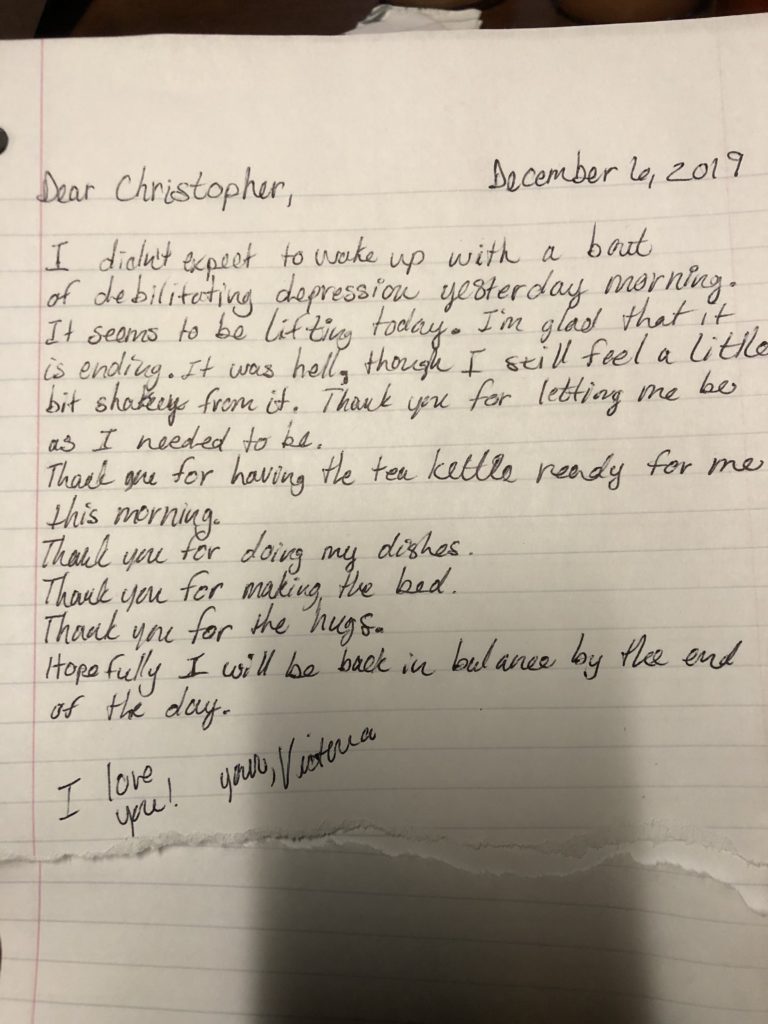 Dear Christopher, December 6, 2019
I didn't expect to wake up with a bout
of debilitating depression yesterday morning.
It seems to be lifting today. I'm glad that it
is ending. It was hell, though I still feel a little
bit shakey from it. Thank you for letting me be
as I needed to be.
Thank you for having the tea kettle ready for me
this morning.
Thank you for doing my dishes.
Thank you for making the bed.
Thank you for the hugs.
Hopefully I will be back in balance by the end
of the day.
I love
you! yours, Victoria